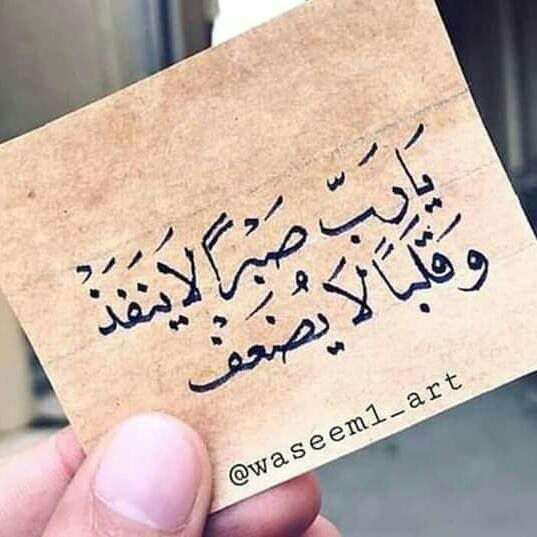 يَارَبّ صَبْراً لَا يَنفَذْ
وَقَلْبَاً لَا يَضعُفْ
@waseem1_art